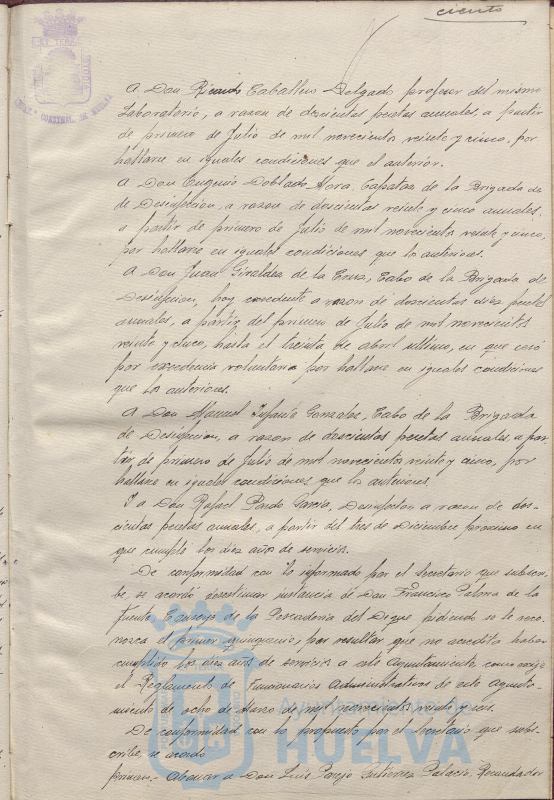 ciento
A Don Ricardo Caballero Delgado profesor del mismo
Laboratorio, a razon de doscientas pesetas anuales a partir
de primero de Julio de mil novecientos veinte y cinco, por
hallarse en iguales condiciones que el anterior.
A Don Eugenio Doblado Mora, Capataz de la Brigada de
de Desinfeccion, a razon de doscientas veinte y cinco anuales,
a partir de primero de Julio de mil novecientos veinte y cinco,
por hallarse en iguales condiciones que los anteriores.
A Don Juan Giraldez de la Cruz, Cabo de la Brigada de
Desinfeccion, hoy excedente a razon de doscientas diez pesetas
anuales, a partir del primero de Julio de mil novecientos
veinte y cinco, hasta el treinta de abril ultimo, en que cesó
por excedencia voluntaria por hallarse en iguales condiciones
que los anteriores.
A Don Manuel Infante Gonzalez, Cabo de la Brigada
de Desinfeccion, a razon de doscientas pesetas anuales a par
tir de primero de Julio de mil novecientos veinte y cinco, por
hallarse en iguales condiciones que los anteriores.
Y a Don Rafael Pardo Garcia, Desinfector a razon de dos-
cientas pesetas anuales, a partir del tres de Diciembre proximo en
que cumple los diez años de servicios.
De conformidad con lo informado por el Secretario que subscri-
be, se acordó desestimar instancia de Don Francisco de la
Fuente, Conserje de la Pescaderia del Dique pidiendo se le reco-
nozca el primer quinquenio, por resultar que no acredita haber
cumplido los diez años de servicios a este Ayuntamiento como exige
el Reglamento de Funcionarios Administrativos de este Ayunta-
miento de ocho de Marzo de mil novecientos veinte y seis.
De conformidad con lo propuesto por el Secretario que subs-
cribe, se acordó
primero.- Abonar a Don Luis Parejo Gutierrez Palacio, Recaudador
Ayuntamiento de
HUELVA